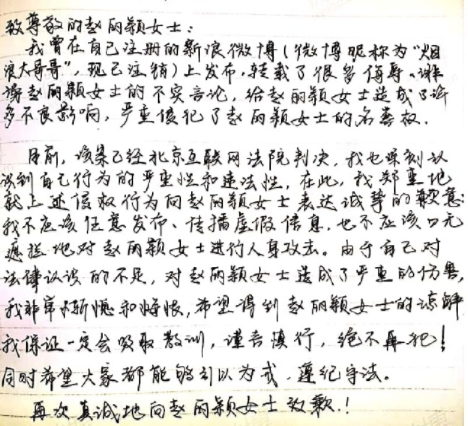 致尊敬的赵丽颖女士：
我曾在自己注册的新浪微博（微博昵称为“烟
浪大哥哥”，现已注销）上发布、转载了很多侮辱、诽
谤赵丽颖女士的不实言论，给赵丽颖女士造成了许
多不良影响，严重侵犯了赵丽颖女士的名誉权。
目前，该案已经北京互联网法院判决，我也深刻认
识到自己行为的严重性和违法性，在此，我郑重地
就上述侵权行为向赵丽颖女士表达诚挚的歉意：
我不应该任意发布、传播虚假信息，也不应该口无
遮拦地对赵丽颖女士进行人身攻击。由于自己对
法律认识的不足，对赵丽颖女士造成了严重的伤害，
我非常惭愧和悔恨，希望得到赵丽颖女士的谅解，
我保证一定会吸取教训，谨言慎行，绝不再犯！
同时希望大家都能够引以为戒、遵纪守法。
再次真诚地向赵丽颖女士致歉！